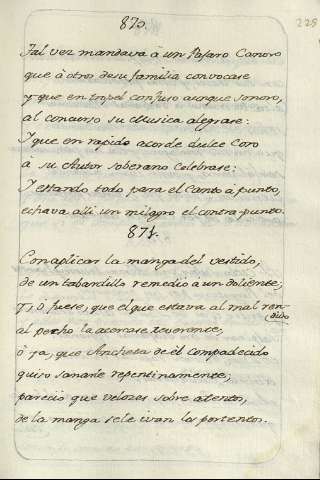 870.
228
Tal vez mandava à un Pajaro Canoro
que à otros de su familia convocase
y que en tropel confuso aunque sonoro,
al concurso su Musica alegrase:
Y que en rapido acorde dulce Coro
à su Autor soberano Celebrase:
Y estando todo para el Canto à punto,
echava alli un milagro el contra-punto.
871.
Con aplicar la manga del vestido,
de un tabardillo remedio a un doliente;
Y, ó fuese, que el que estava al mal ren-
dido
al pecho la acercase reverente,
ó ya, que Ancheta de él compadecido
quiso sanarle repentinamente;
pareció que velozes sobre atentos,
de la manga se le ivan los portentos.